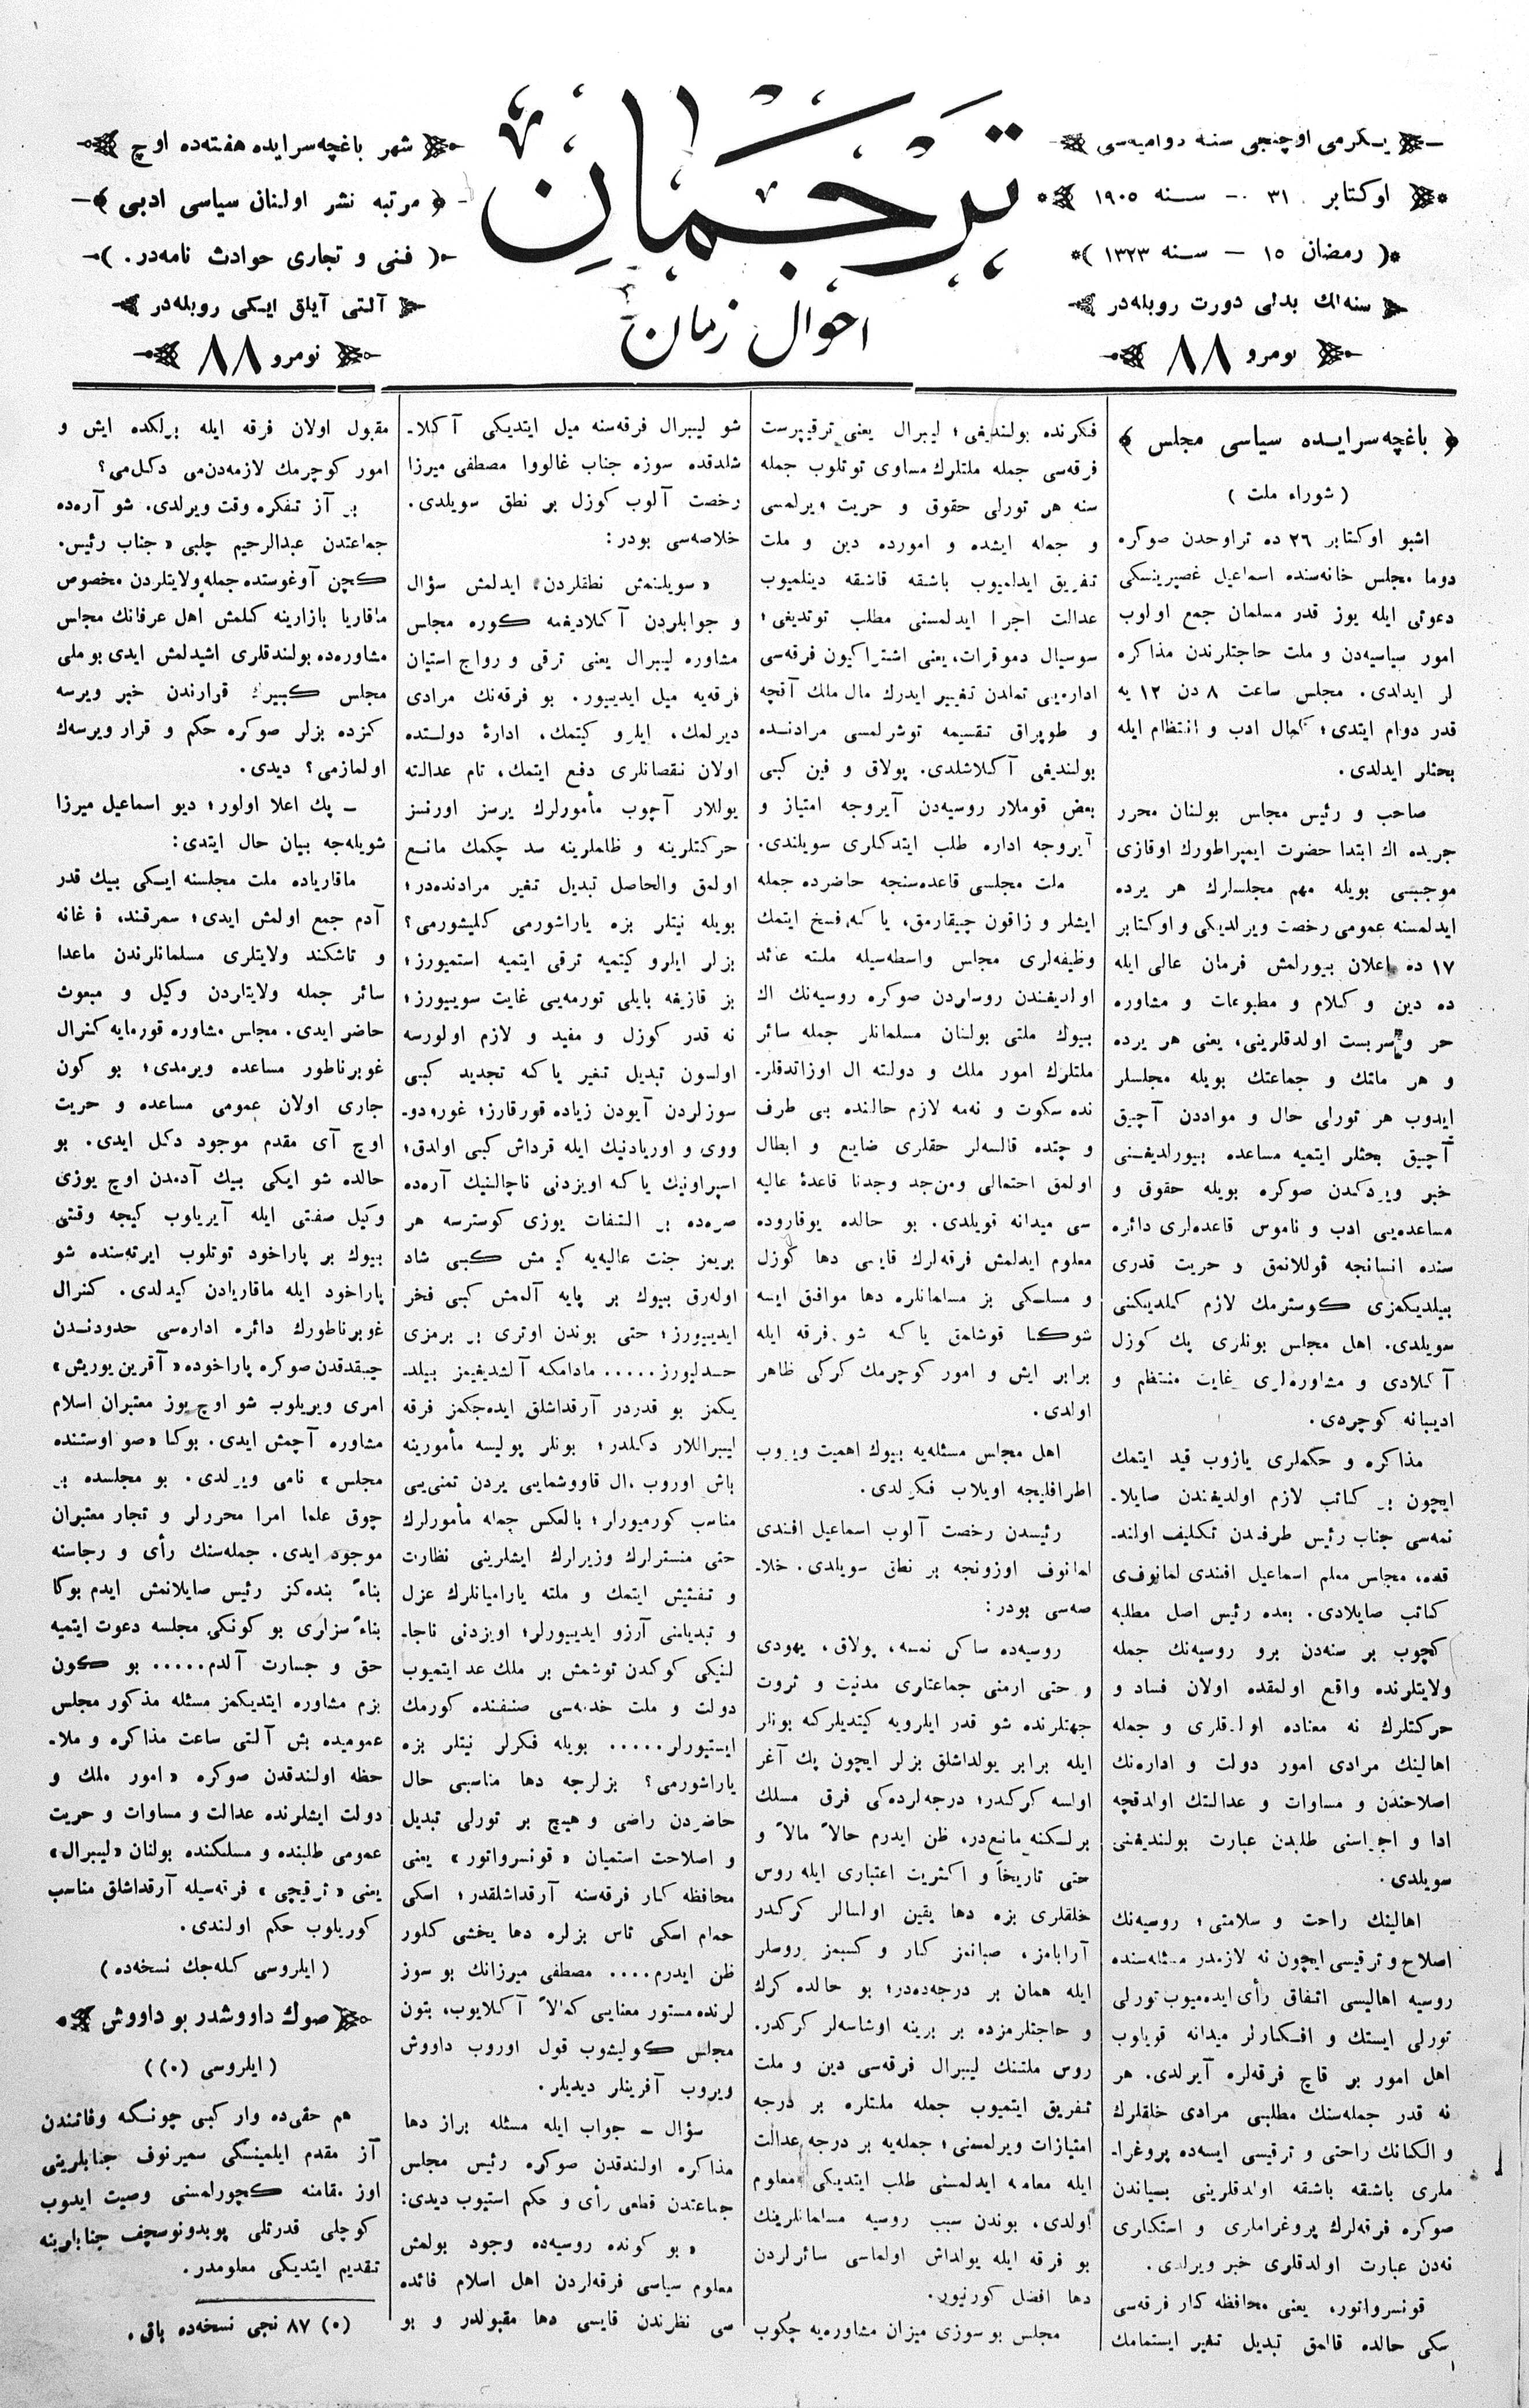 يكرمی اوچنجی سنه دوامیه‌سی
اوکتابر ٣١ — سنه ١٩٠٥
( رمضان ١٥ — سنه ١٣٢٣ )
سنه‌لك بدلی دورت روبله‌در
نومرو ٨٨
ترجمان
احوال زمان
شهر باغچه‌سرایده هفته‌ده اوچ
مرتبه نشر اولنان سیاسی ادبی
( فنی و تجاری حوادث نامه‌در . )
آلتی آیلق ایکی روبله‌در
نومرو ٨٨
﴿ باغچه‌سرایده سیاسی مجلس ﴾
( شوراء ملت )
اشبو اوکتابر ٢٦ ده تراوحدن صوکره
دوما مجلس خانه‌سنده اسماعیل غصپرینسکی
دعوتی ایله یوز قدر مسلمان جمع اولوب
امور سیاسیه‌دن و ملت حاجتلرندن مذاکره
لر ایدلدی. مجلس ساعت ٨ دن ١٢ یه
قدر دوام ایتدی؛ کمال ادب و انتظام ایله
بحثلر ایدلدی.
صاحب و رئیس مجلس بولنان محرر
جریده اك ابتدا حضرت ایمپراطورك اوقازی
موجبنجی بویله مهم مجلسلرك هر یرده
ایدلمسنه عمومی رخصت ویرلدیکی و اوکتابر
١٧ ده اعلان بیورلمش فرمان عالی ایله
ده دین و کلام و مطبوعات و مشاوره
حر و سربست اولدقلرینی، یعنی هر یرده
و هر ملتك و جماعتك بویله مجلسلر
ایدوب هر تورلی حال و مواددن آچیق
آچیق بحثلر ایتمیه مساعده بیورلدیغنی
خبر ویردکدن صوکره بویله حقوق و
مساعده‌یی ادب و ناموس قاعده‌لری دائره
سنده انسانجه قوللانمق و حریت قدری
بیلدیکمزی کوسترمك لازم کلدیکنی
سویلدی. اهل مجلس بونلری پك کوزل
آکلادی و مشاوره‌لری غایت منتظم و
ادیبانه کوچردی.
مذاکره و حکملری یازوب قید ایتمك
ایچون بر کاتب لازم اولدیغندن صایلا-
نمه‌سی جناب رئیس طرفندن تکلیف اولند-
قده، مجلس معلم اسماعیل افندی لمانوف‌ی
کاتب صایلادی. بعده رئیس اصل مطلبه
کچوب بر سنه‌دن برو روسیه‌نك جمله
ولایتلرنده واقع اولمقده اولان فساد و
حرکتلرك نه معناده اولدقلری و جمله
اهالینك مرادی امور دولت و اداره‌نك
اصلاحندن و مساوات و عدالتك اولدقچه
ادا و اجراسنی طلبدن عبارت بولندیغنی
سویلدی.
اهالینك راحت و سلامتی؛ روسیه‌نك
اصلاح و ترقیسی ایچون نه لازمدر مسئله‌سنده
روسیه اهالیسی اتفاق رأی ایده‌میوب تورلی
تورلی ایستك و افکارلر میدانه قویلوب
اهل امور بر قاچ فرقه‌لره آیرلدی. هر
نه قدر جمله‌سنك مطلبی مرادی خلقلرك
و الکانك راحتی و ترقیسی ایسه‌ده پروغرا-
ملری باشقه باشقه اولدقلرینی بیاندن
صوکره فرقه‌لرك پروغراملری و استکلری
نه‌دن عبارت اولدقلری خبر ویرلدی.
قونسرواتور، یعنی محافظه کار فرقه‌سی
اسکی حالده قالمق تبدیل تغیر ایستمامك
فکرنده بولندیغی؛ لیبرال یعنی ترقیپرست
فرقه‌سی جمله ملتلرك مساوی توتلوب جمله
سنه هر تورلی حقوق و حریت ویرلمسی
و جمله ایشده و امورده دین و ملت
تفریق ایدلمیوب باشقه قاشقه دینلمیوب
عدالت اجرا ایدلمسنی مطلب توتدیغی؛
سوسیال دموقرات، یعنی اشتراکیون فرقه‌سی
اداره‌یی تملدن تغییر ایدرك مال ملك آقچه
و طوپراق تقسیمه توشرلمسی مرادنده
بولندیغی آکلاشلدی. پولاق و فین کبی
بعض قوملار روسیه‌دن آیروجه امتیاز و
آیروجه اداره طلب ایتدکلری سویلندی.
ملت مجلسی قاعده‌سنجه حاضرده جمله
ایشلر و زاقون چیقارمق، یا که فسخ ایتمك
وظیفه‌لری مجلس واسطه‌سیله ملته عائد
اولدیغندن روسلردن صوکره روسیه‌نك اك
بیوك ملتی بولنان مسلمانلر جمله سائر
ملتلرك امور ملك و دولته ال اوزاتدقلر-
نده سکوت و نه‌مه لازم حالنده بی طرف
و چتده قالسه‌لر حقلری ضایع و ابطال
اولمق احتمالی ومن‌جد وجدنا قاعدهٔ عالیه
سی میدانه قویلدی. بو حالده یوقاروده
معلوم ایدلمش فرقه‌لرك قایسی دها کوزل
و مسلکی بز مسلمانلره دها موافق ایسه
شوکا قوشلمق یا که شو فرقه ایله
برابر ایش و امور کوچرمك کرکی ظاهر
اولدی.
اهل مجلس مسئله‌یه بیوك اهمیت ویروب
اطرافلیجه اویلاب فکرلدی.
رئیسدن رخصت آلوب اسماعیل افندی
لمانوف اوزونجه بر نطق سویلدی. خلا-
صه‌سی بودر:
روسیه‌ده ساکن نمسه، پولاق، یهودی
و حتی ارمنی جماعتلری مدنیت و ثروت
جهتلرنده شو قدر ایلرویه کیتدیلرکه بونلر
ایله برابر یولداشلق بزلر ایچون پك آغر
اولسه کرکدر؛ درجه‌لرده‌کی فرق مسلك
برلکنه مانع‌در، ظن ایدرم حالاً مالاً و
حتی تاریخاً و اکثریت اعتباری ایله روس
خلقلری بزه دها یقین اولسالر کرکدر
آرابامز، صبانمز کار و کسبمز روسلر
ایله همان بر درجه‌ده‌در؛ بو حالده کرك
و حاجتلرمزده بر برینه اوشاسه‌لر کرکدر.
روس ملتنك لیبرال فرقه‌سی دین و ملت
تفریق ایتمیوب جمله ملتلره بر درجه
امتیازات ویرلمسنی؛ جمله‌یه بر درجه عدالت
ایله معامله ایدلمسنی طلب ایتدیکی معلوم
اولدی. بوندن سبب روسیه مسلمانلرینك
بو فرقه ایله یولداش اولماسی سائرلردن
دها افضل کورنیور.
مجلس بو سوزی میزان مشاوره‌یه چکوب
شو لیبرال فرقه‌سنه میل ایتدیکی آکلا-
شلدقده سوزه جناب غالووا مصطفی میرزا
رخصت آلوب کوزل بر نطق سویلدی.
خلاصه‌سی بودر:
« سویلنمش نطقلردن، ایدلمش سؤال
و جوابلردن آکلادیغمه کوره مجلس
مشاوره لیبرال یعنی ترقی و رواج استیان
فرقه‌یه میل ایدییور. بو فرقه‌نك مرادی
دیرلمك، ایلرو کیتمك، ادارهٔ دولتده
اولان نقصانلری دفع ایتمك، تام عدالته
یوللار آچوب مأمورلرك یرسز اورنسز
حرکتلرینه و ظلملرینه سد چکمك مانع
اولمق والحاصل تبدیل تغیر مرادنده‌در؛
بویله نیتلر بزه یاراشورمی کلیشورمی؟
بزلر ایلرو کیتمیه ترقی ایتمیه استمیورز؛
بز قازیغه بایلی تورمه‌یی غایت سوییورز؛
نه قدر کوزل و مفید و لازم اولورسه
اولسون تبدیل تغیر یا که تجدید کبی
سوزلردن آیودن زیاده قورقارز؛ غورودو-
ووی و اوریادنیك ایله قرداش کبی اولدق؛
اسپراونیك یا که اویزدنی ناچالنیك آره‌ده
صره‌ده بر التفات یوزی کوسترسه هر
بریمز جنت عالیه‌یه کیرمش کبی شاد
اوله‌رق بیوك بر پایه آلمش کبی فخر
ایدییورز؛ حتی بوندن اوتری بر برمزی
حسدلیورز..... مادامکه آلشدیغیمز بیلد-
یکمز بو قدردر آرقداشلق ایده‌جکمز فرقه
لیبراللار دکلدر؛ بونلر پولیسه مأمورینه
باش اوروب ال قاووشمایی یردن تمنی‌یی
مناسب کورمیورلر؛ بالعکس جمله مأمورلرك
حتی منسترلرك وزیرلرك ایشلرینی نظارت
و تفتیش ایتمك و ملته یارامیانلرك عزل
و تبدیلنی آرزو ایدییورلر؛ اویزدنی ناچا-
لنیکی کوکدن توشمش بر ملك عد ایتمیوب
دولت و ملت خدمه‌سی صنفنده کورمك
ایستیورلر..... بویله فکرلر نیتلر بزه
یاراشورمی؟ بزلرجه دها مناسبی حال
حاضردن راضی و هیچ بر تورلی تبدیل
و اصلاحت استمیان « قونسرواتور » یعنی
محافظه کار فرقه‌سنه آرقداشلقدر؛ اسکی
حمام اسکی تاس بزلره دها یخشی کلور
ظن ایدرم.... مصطفی میرزانك بو سوز
لرنده مستور معنایی کاملاً آکلایوب، بتون
مجلس کولیشوب قول اوروب داووش
ویروب آفرینلر دیدیلر.
سؤال — جواب ایله مسئله براز دها
مذاکره اولندقدن صوکره رئیس مجلس
جماعتدن قطعی رأی و حکم استیوب دیدی:
« بو کونده روسیه‌ده وجود بولمش
معلوم سیاسی فرقه‌لردن اهل اسلام فائده
سی نظرندن قایسی دها مقبولدر و بو
مقبول اولان فرقه ایله برلکده ایش و
امور کوچرمك لازمه‌دن‌می دکل‌می؟
بر آز تفکره وقت ویرلدی. شو آره‌ده
جماعتدن عبدالرحیم چلبی « جناب رئیس.
کچن آوغوستده جمله ولایتلردن مخصوص
ماقاریا بازارینه کلمش اهل عرفانك مجلس
مشاوره‌ده بولندقلری اشیدلمش ایدی بو ملی
مجلس کبیرك قرارندن خبر ویرسه
کزده بزلر صوکره حکم و قرار ویرسه‌ك
اولمازمی؟ دیدی.
— پك اعلا اولور؛ دیو اسماعیل میرزا
شویله‌جه بیان حال ایتدی:
ماقاریاده ملت مجلسنه ایکی بیك قدر
آدم جمع اولمش ایدی؛ سمرقند، فرغانه
و تاشکند ولایتلری مسلمانلرندن ماعدا
سائر جمله ولایتلردن وکیل و مبعوث
حاضر ایدی. مجلس مشاوره قورمایه کنرال
غوبرناطور مساعده ویرمدی؛ بو کون
جاری اولان عمومی مساعده و حریت
اوچ آی مقدم موجود دکل ایدی. بو
حالده شو ایکی بیك آدمدن اوچ یوزی
وکیل صفتی ایله آیریلوب کیجه وقتی
بیوك بر پاراخود توتلوب ایرته‌سنده شو
پاراخود ایله ماقاریادن کیدلدی. کنرال
غوبرناطورك دائره اداره‌سی حدودندن
چیقدقدن صوکره پاراخوده « آقرین یوریش »
امری ویریلوب شو اوچ یوز معتبران اسلام
مشاوره آچمش ایدی. بوکا « صو اوستنده
مجلس » نامی ویرلدی. بو مجلسده بر
چوق علما امرا محررلر و تجار معتبران
موجود ایدی. جمله‌سنك رأی و رجاسنه
بناءً بنده‌کز رئیس صایلانمش ایدم بوکا
بناءً سزلری بو کونکی مجلسه دعوت ایتمیه
حق و جسارت آلدم..... بو کون
بزم مشاوره ایتدیکمز مسئله مذکور مجلس
عمومیده بش آلتی ساعت مذاکره و ملا-
حظه اولندقدن صوکره « امور ملك و
دولت ایشلرنده عدالت و مساوات و حریت
عمومی طلبنده و مسلکنده بولنان « لیبرال »
یعنی « ترقیچی » فرقه‌سیله آرقداشلق مناسب
کوریلوب حکم اولندی.
( ایلروسی کله‌جك نسخه‌ده )
صوك داووشدر بو داووش
( ایلروسی (٠) )
هم حقی‌ده وار کبی چونکه وفاتندن
آز مقدم ایلمینسکی سمیرنوف جنابلرینی
اوز مقامنه کچورلمسنی وصیت ایدوب
کوچلی قدرتلی پوبدونوسچف جنابلرینه
تقدیم ایتدیکی معلومدر.
(٠) ٨٧ نجی نسخه‌ده باق.